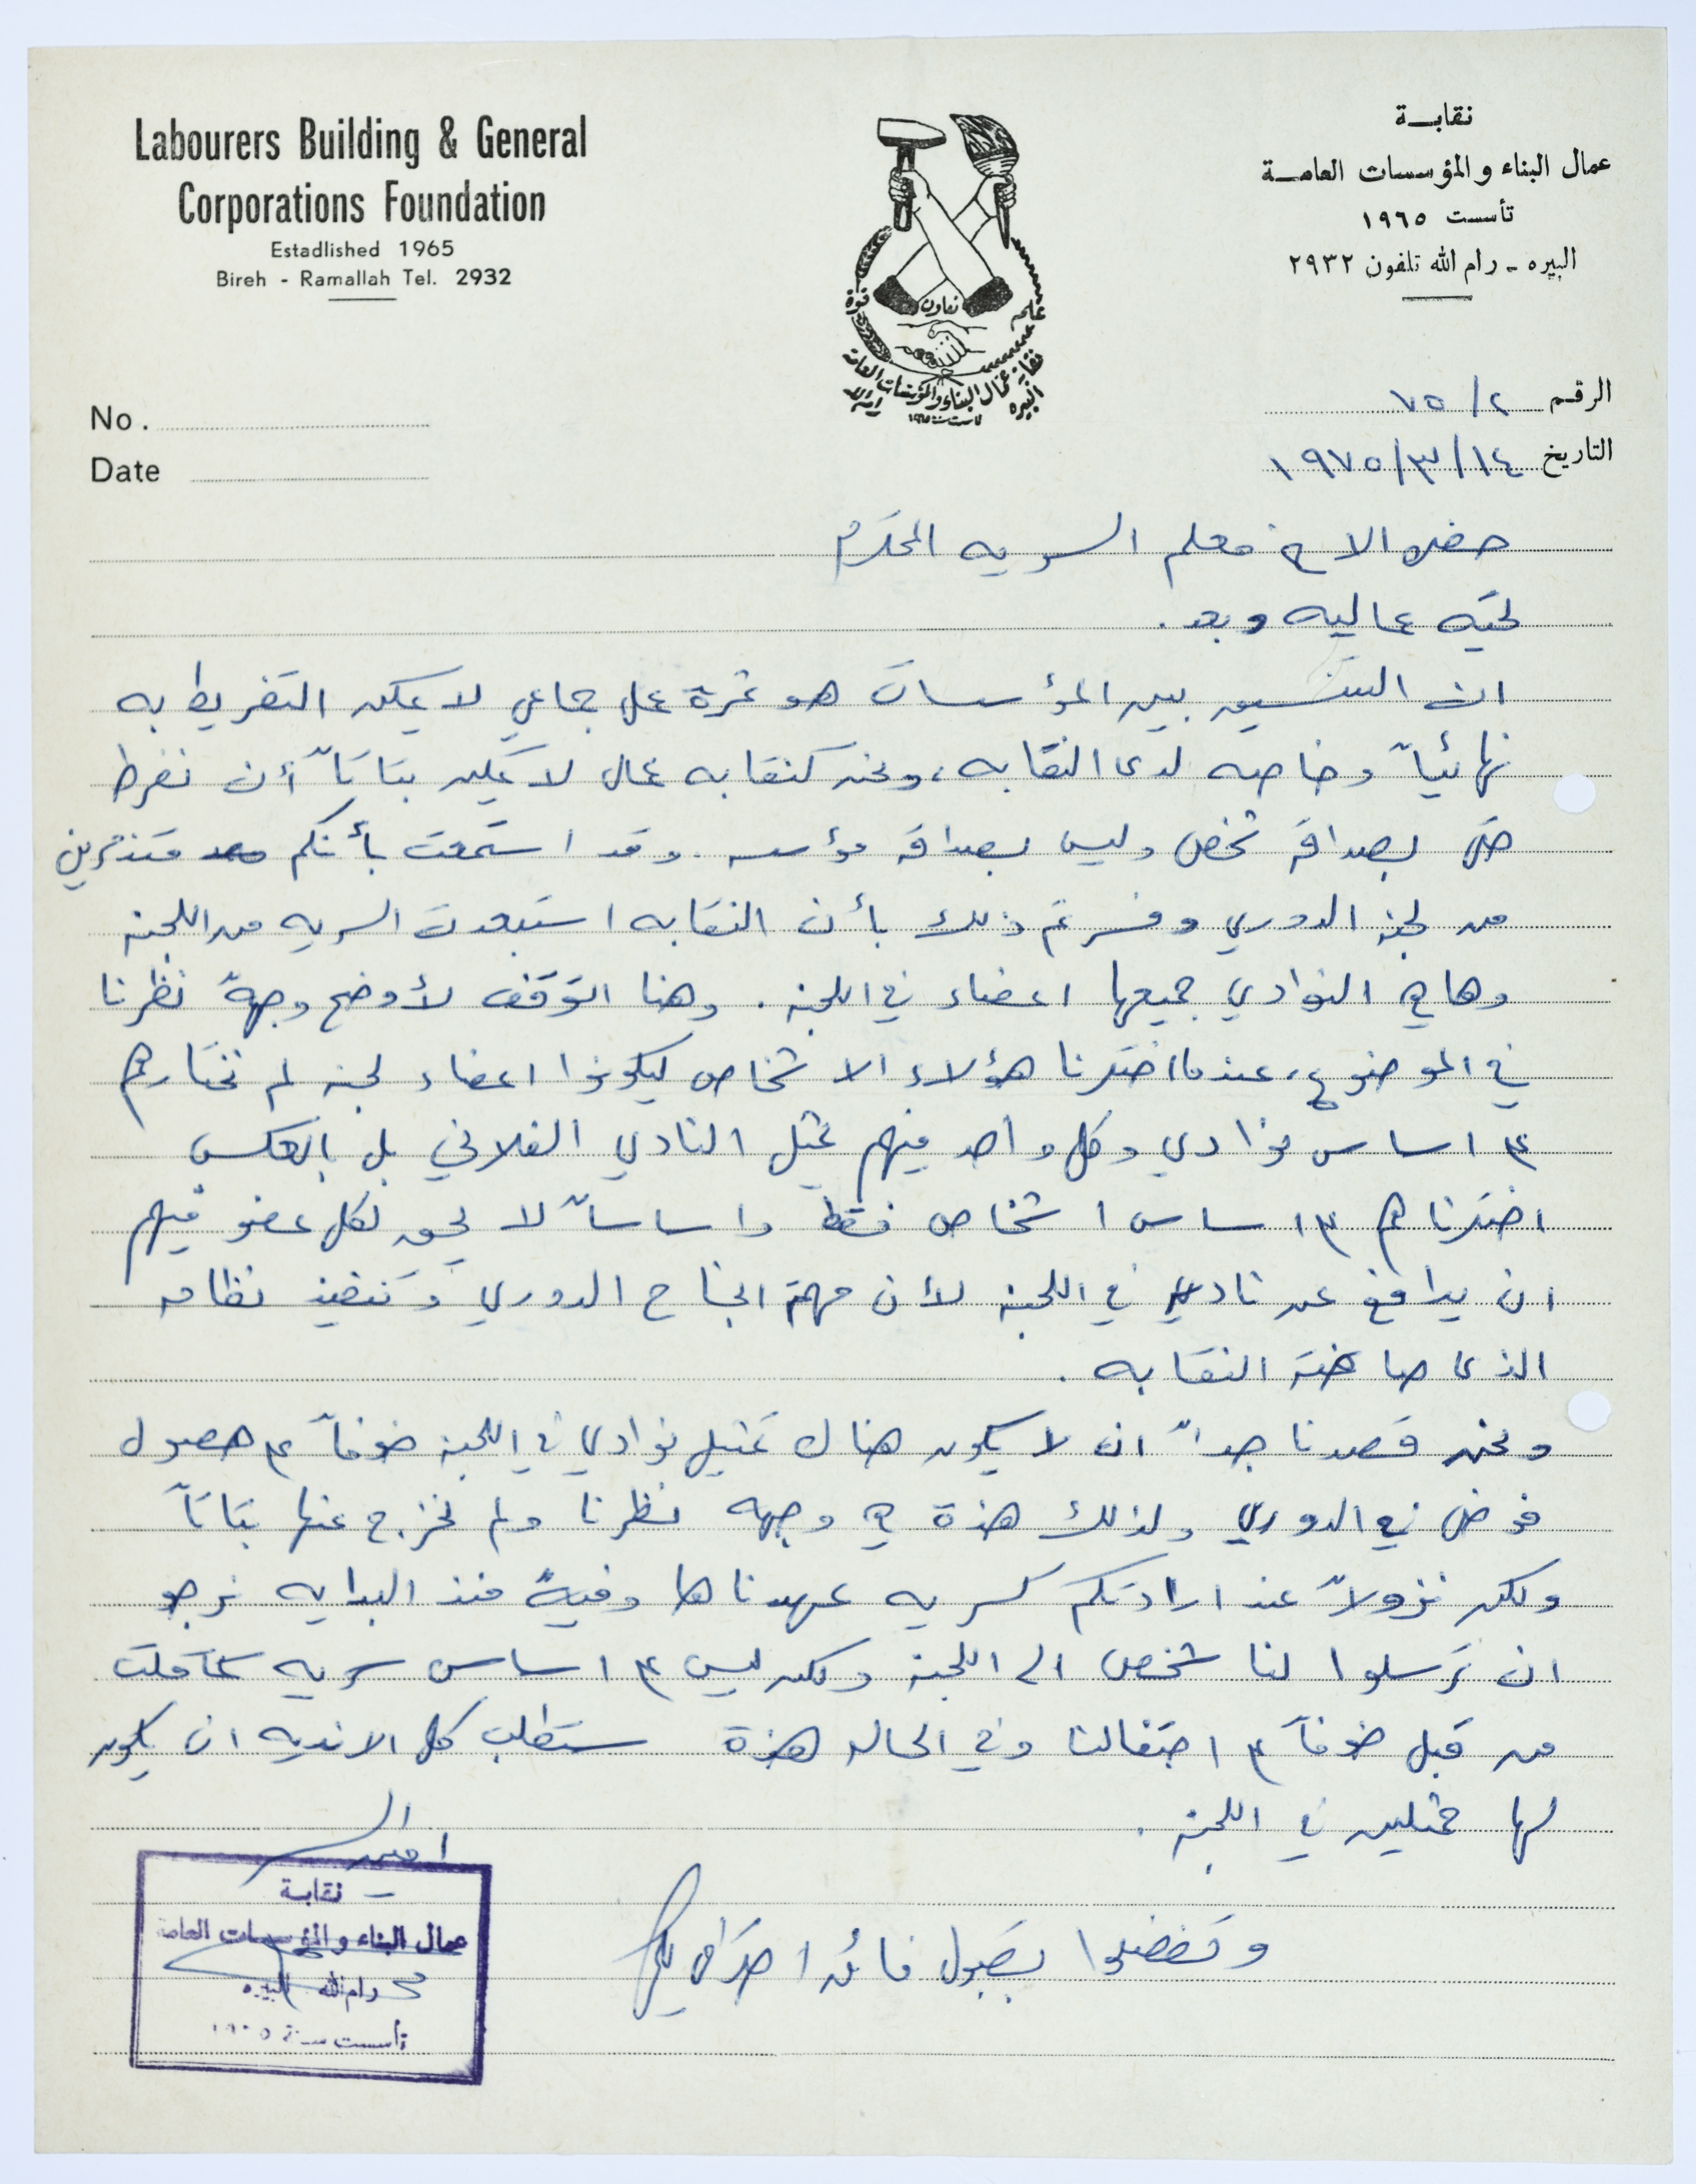 Labourers Building & General
Corporations Foundation
Estadlished 1965
Bireh - Ramallah Tel. 2932
نقابة
عمال البناء والمؤسسات العامة
تأسست ١٩٦٥
البيره - رام الله تلفون ٢٩٣٢
قوة
تعاون
نقابة عمال البناء والمؤسسات العامة
No.
Date
الرقم ٧٥/٢
التاريخ ١٩٧٥/٣/١٤
حضره الاخ معلم السريه المحترم
تحيه عماليه وبعد.
ان التنسيق بين المؤسسات هو ثمرة عمل جماعي لا يمكن التفريط به
نهائياً وخاصه لدى النقابه، ونحن كنقابه عمال لا يمكن بتاتاً أن نفرط
حتى بصداقة شخص وليس بصداقة مؤسسه. وقد استمعت بأنكم متذمرين
من لجنة الدوري وفسرتم ذلك بأن النقابه استبعدت السريه من اللجنة
وهاهي النوادي جميعها اعضاء في اللجنة. وهنا اتوقف لأوضح وجهة نظرنا
في الموضوع، عندما اخترنا هؤلاء الاشخاص ليكونوا اعضاء لجنه لم نختارهم
على اساس نوادي وكل واحد فيهم يمثل النادي الفلاني بل بالعكس
اخترناهم على اساس اشخاص فقط واساساً لا يحق لكل عضو فيهم
ان يدافع عن نادي في اللجنة لأن مهمة انجاح الدوري وتنفيذ نظامه
الذى صاغته النقابه.
ونحن قصدنا جداً ان لا يكون هناك تمثيل نوادي في اللجنة خوفاً على حصول
فوضى في الدوري ولذلك هذة هي وجهه نظرنا ولم نخرج عنها بتاتاً
ولكن نزولاً عند ارادتكم كسريه عهدناها وفيةً منذ البدايه نرجو
ان ترسلوا لنا شخص الى اللجنة ولكن ليس على اساس سريه كما قلت
من قبل خوفاً على احتفالنا وفي الحاله هذة ستطلب كل الانديه ان يكون
لها ممثلين في اللجنة.
امين السر
وتفضلوا بقبول فائق احترامي
نقابة
عمال البناء والمؤسسات العامة
رام الله البيره
تأسست سنة ١٩٦٥